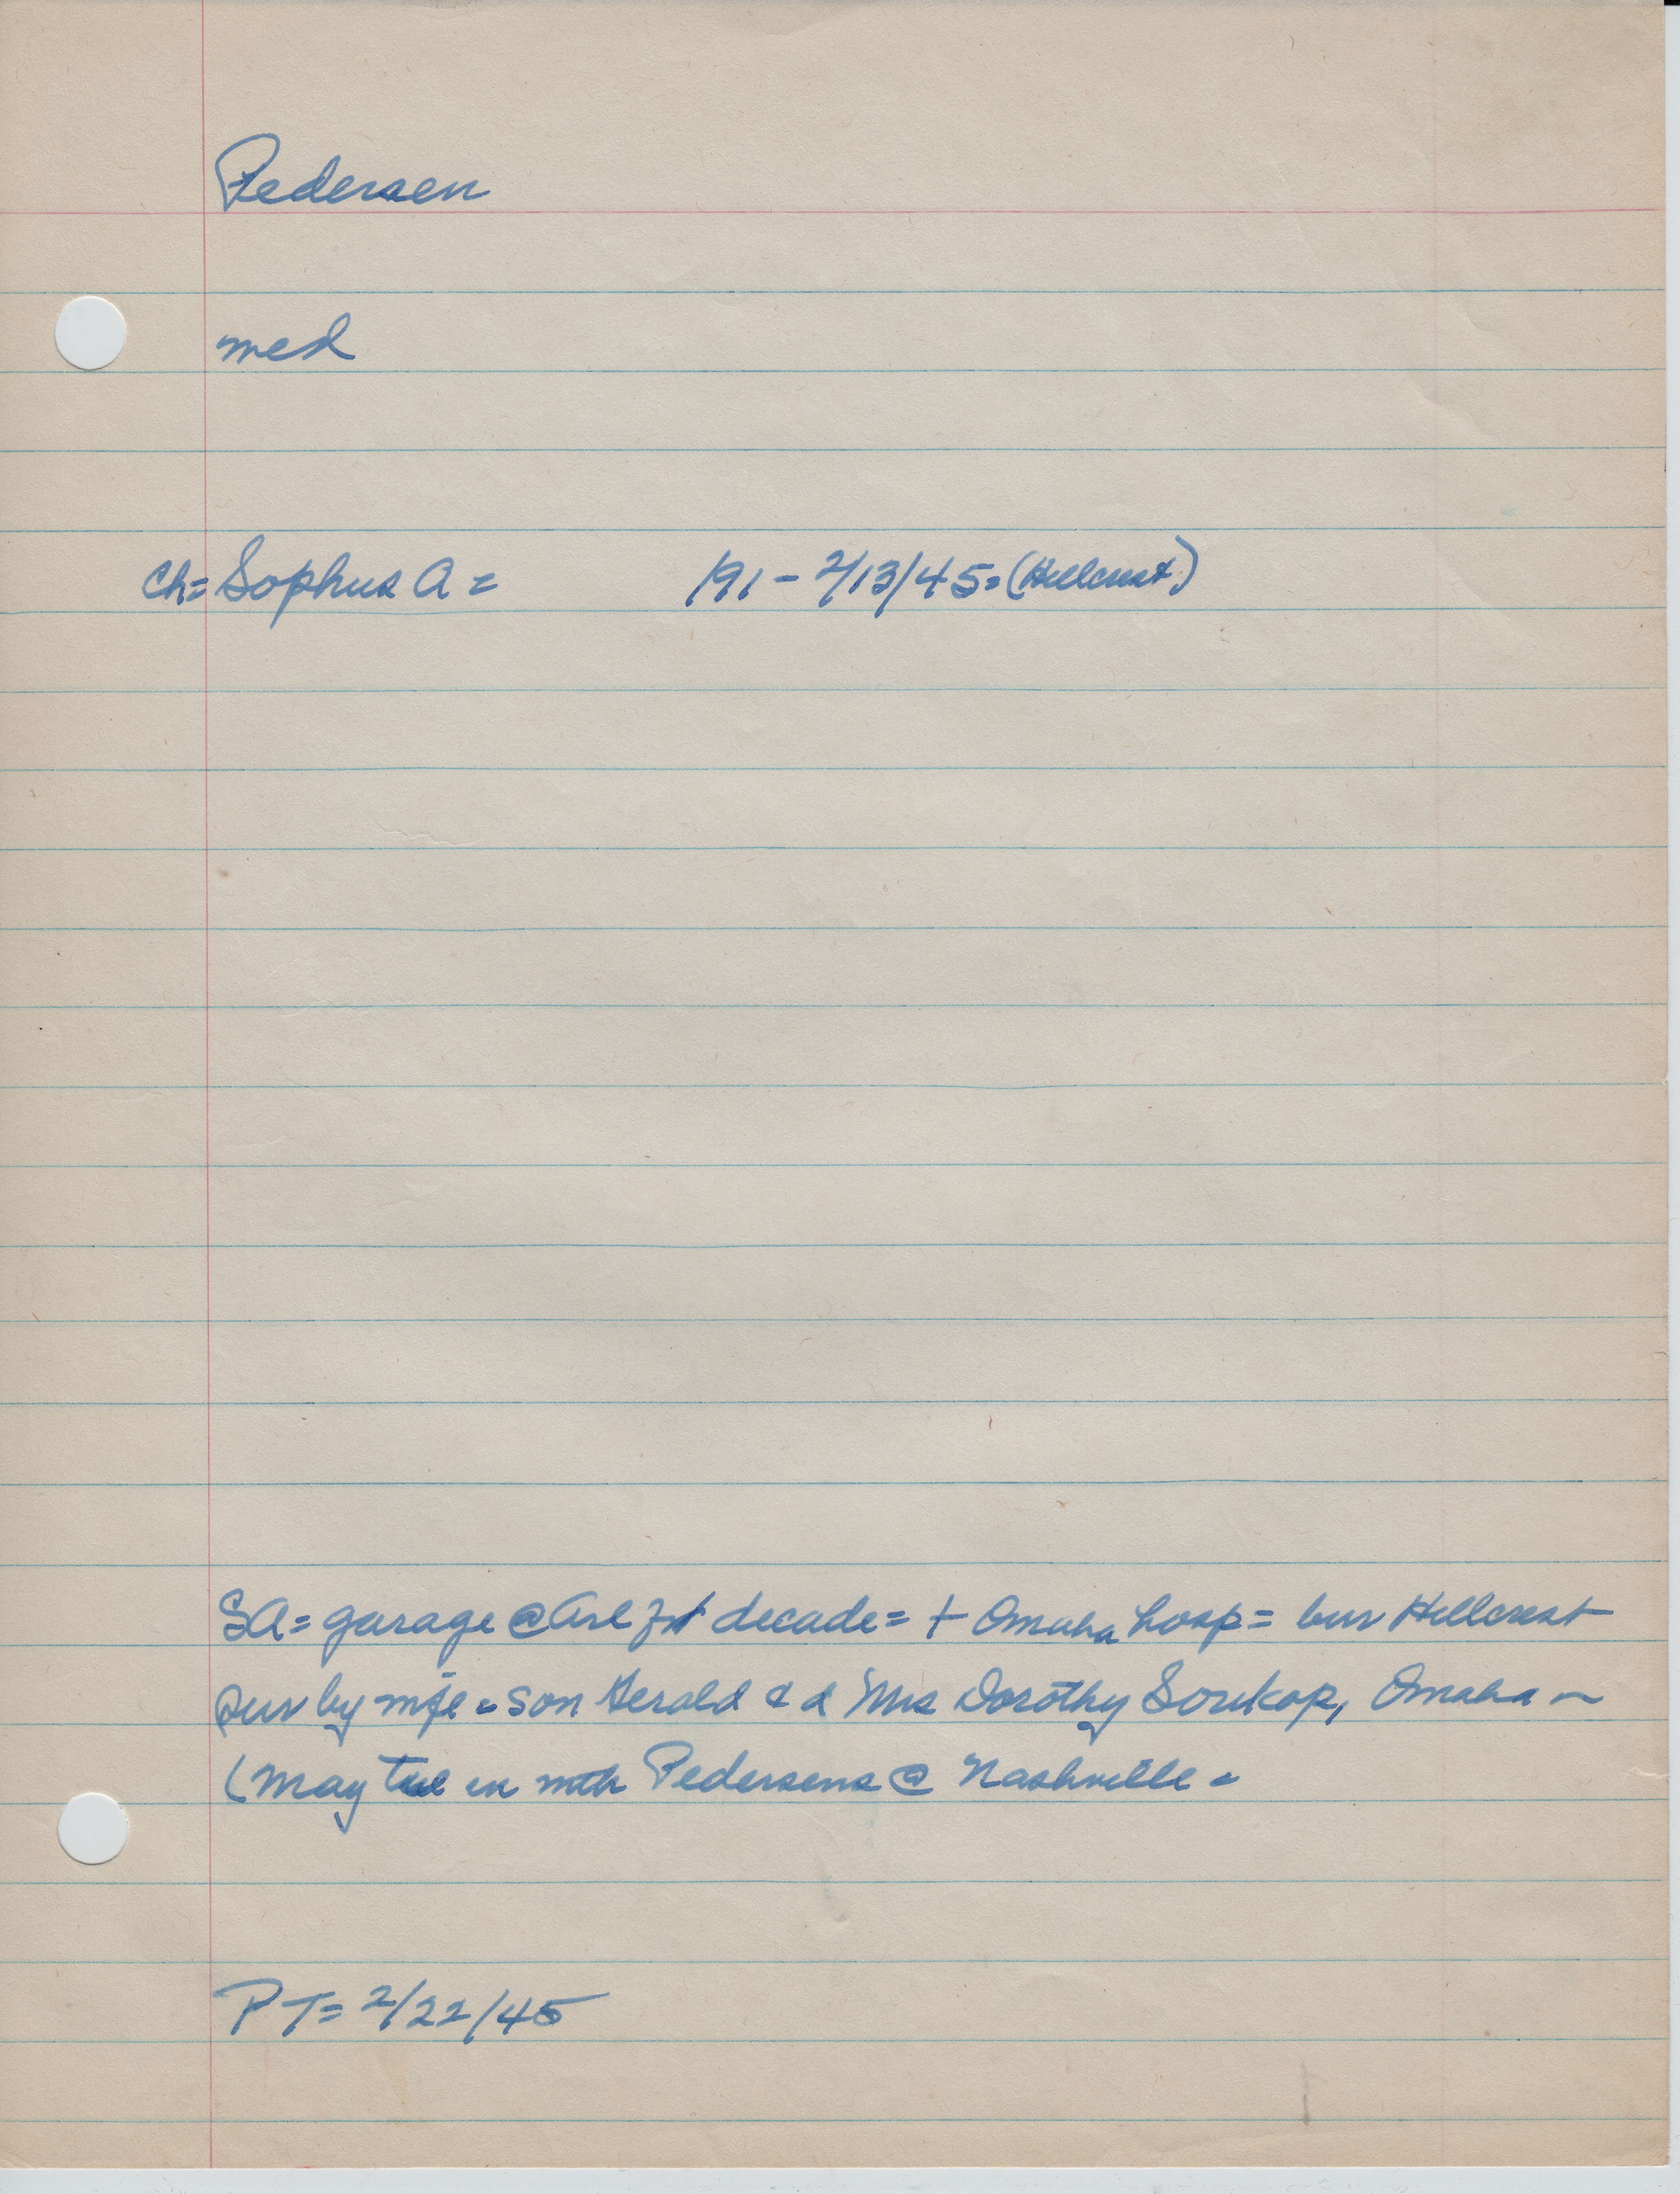 Pedersen
med
Ch= Sophus A = 191 - 2/13/45 = (Hillcrest)
SA = garage @ Arl for decade = + Omaha hosp = bur Hillcrest
sur by wife = son Gerald & d Mrs Dorothy Soukop, Omaha -
(May tie in with Pedersens @ Nashville =
PT = 2/22/45